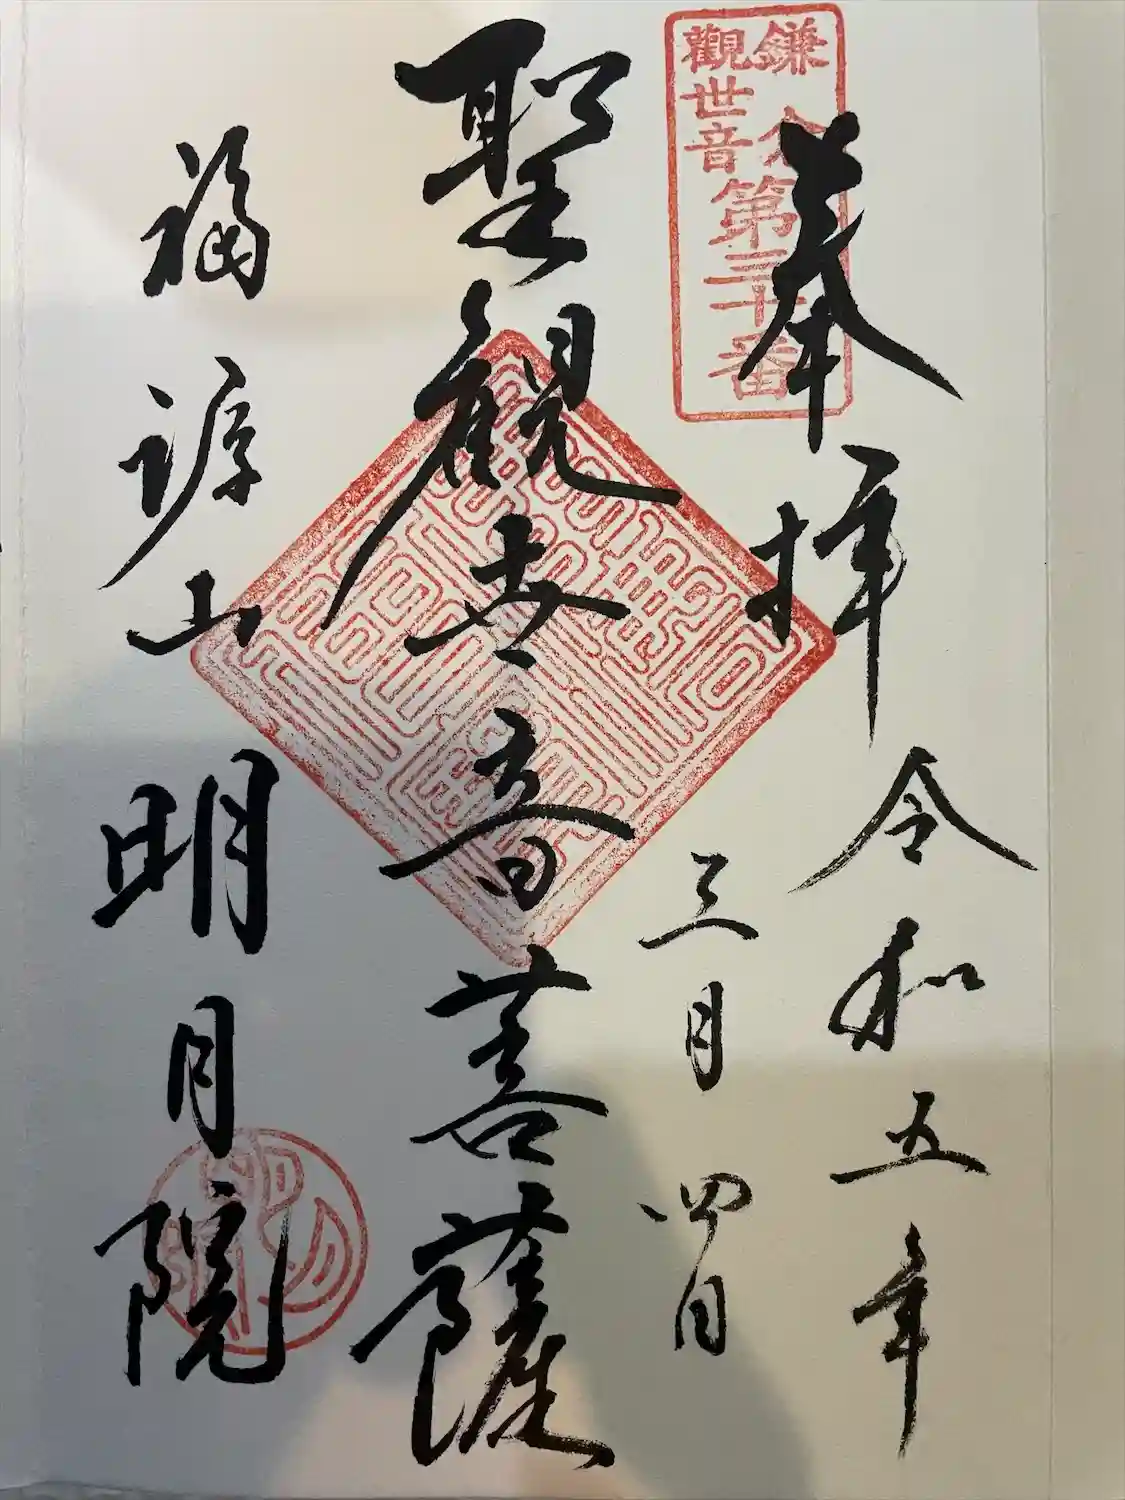 奉拝
令和五年
三月四日
鎌倉
觀世音
第三十番
聖観世音菩薩
福源山
明月院